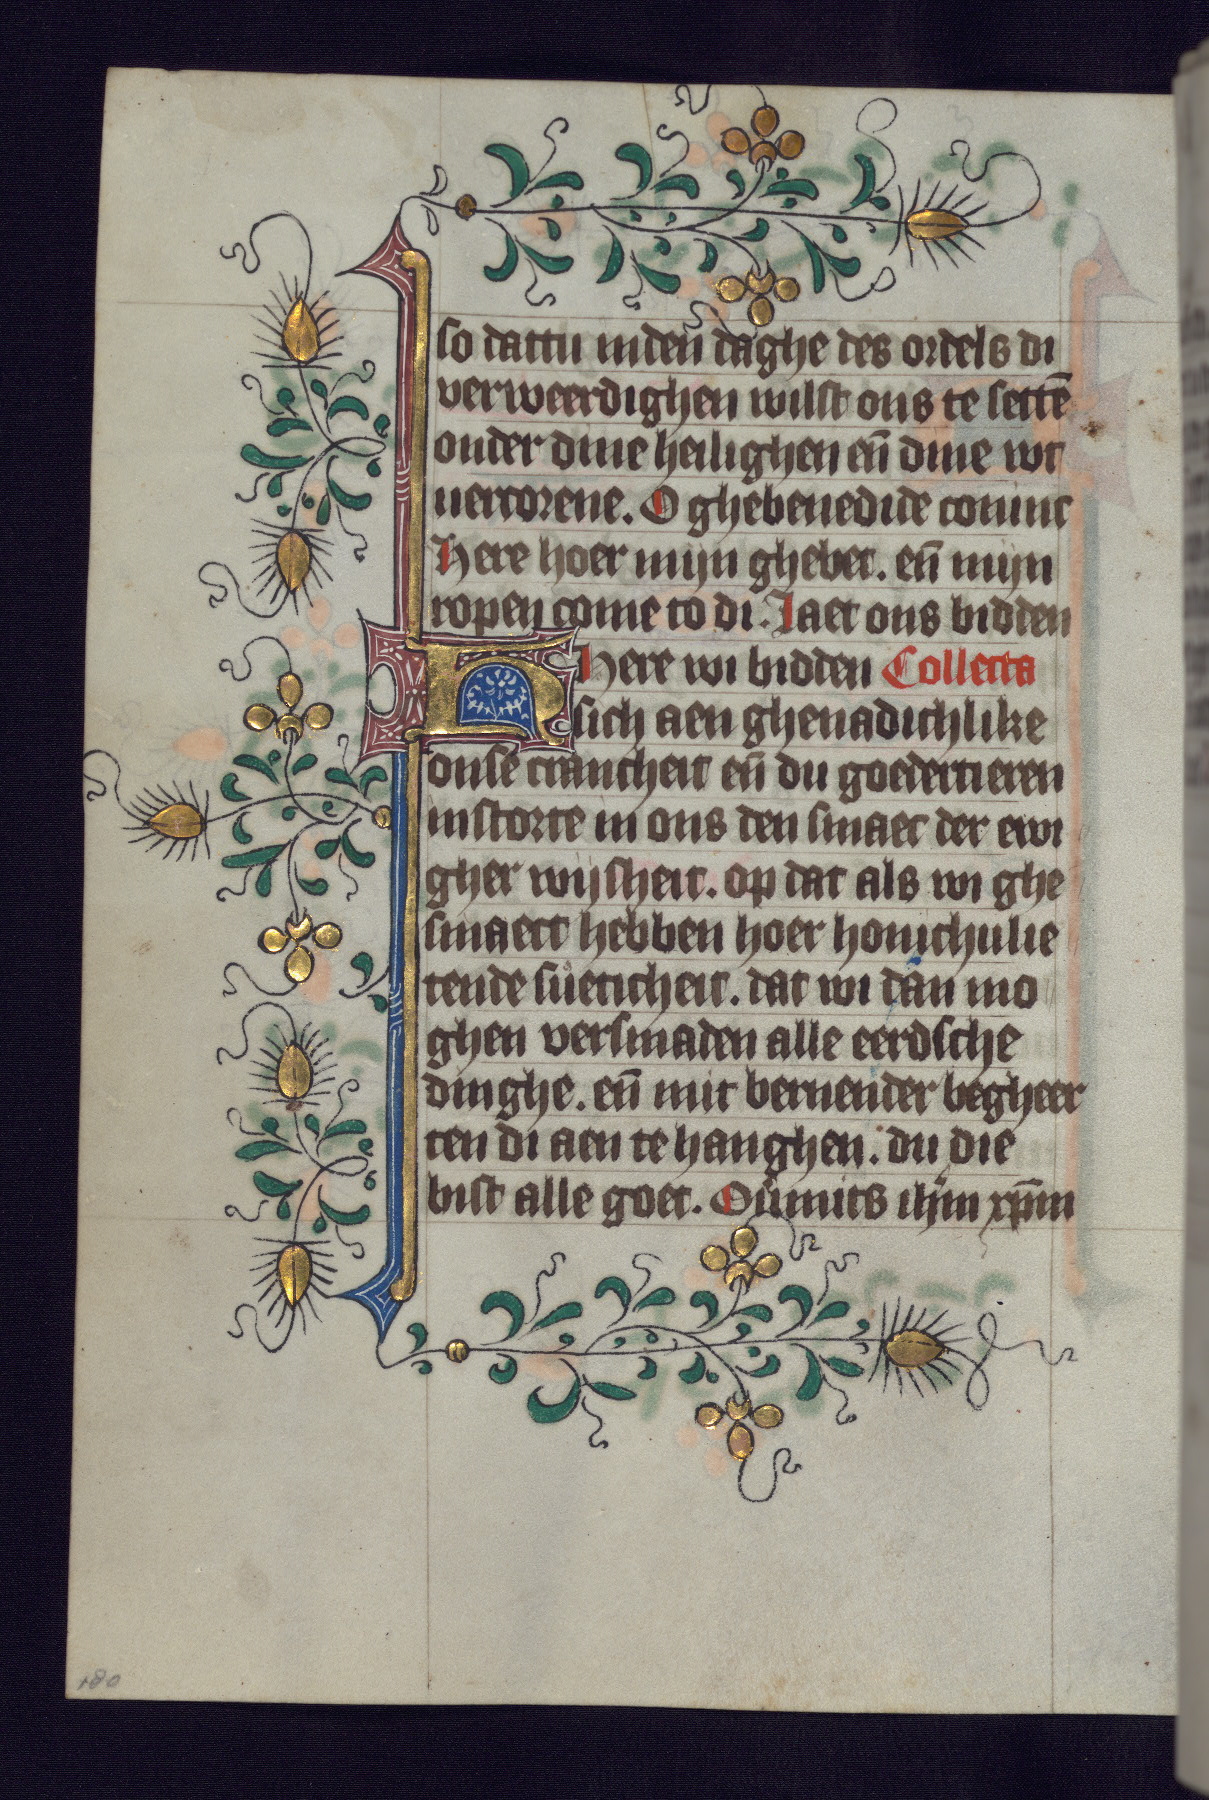 so dattu inden daghe des ordels di
verweerdighen wilst ons te settē
onder dine heilighen eñ dine wt
vercorene. O ghebenedide coninc
Here hoer mijn ghebet. eñ mijn
ropen come to di. Laet ons bidden
Here wi bidden Collecta
sich aen ghenadichlike
onse crancheit eñ du goedertieren
instorte in ons den smaec der ewi
gher wijsheit. op dat als wi ghe
smaect hebben hoer honichulie
tende sueticheit. dat wi dan mo
ghen versmaden alle eerdsche
dinghe. eñ mit bernender begheer
ten di aen te hanghen. du die
bist alle goet. Ouͤmits ihm̄ xp̄m
180